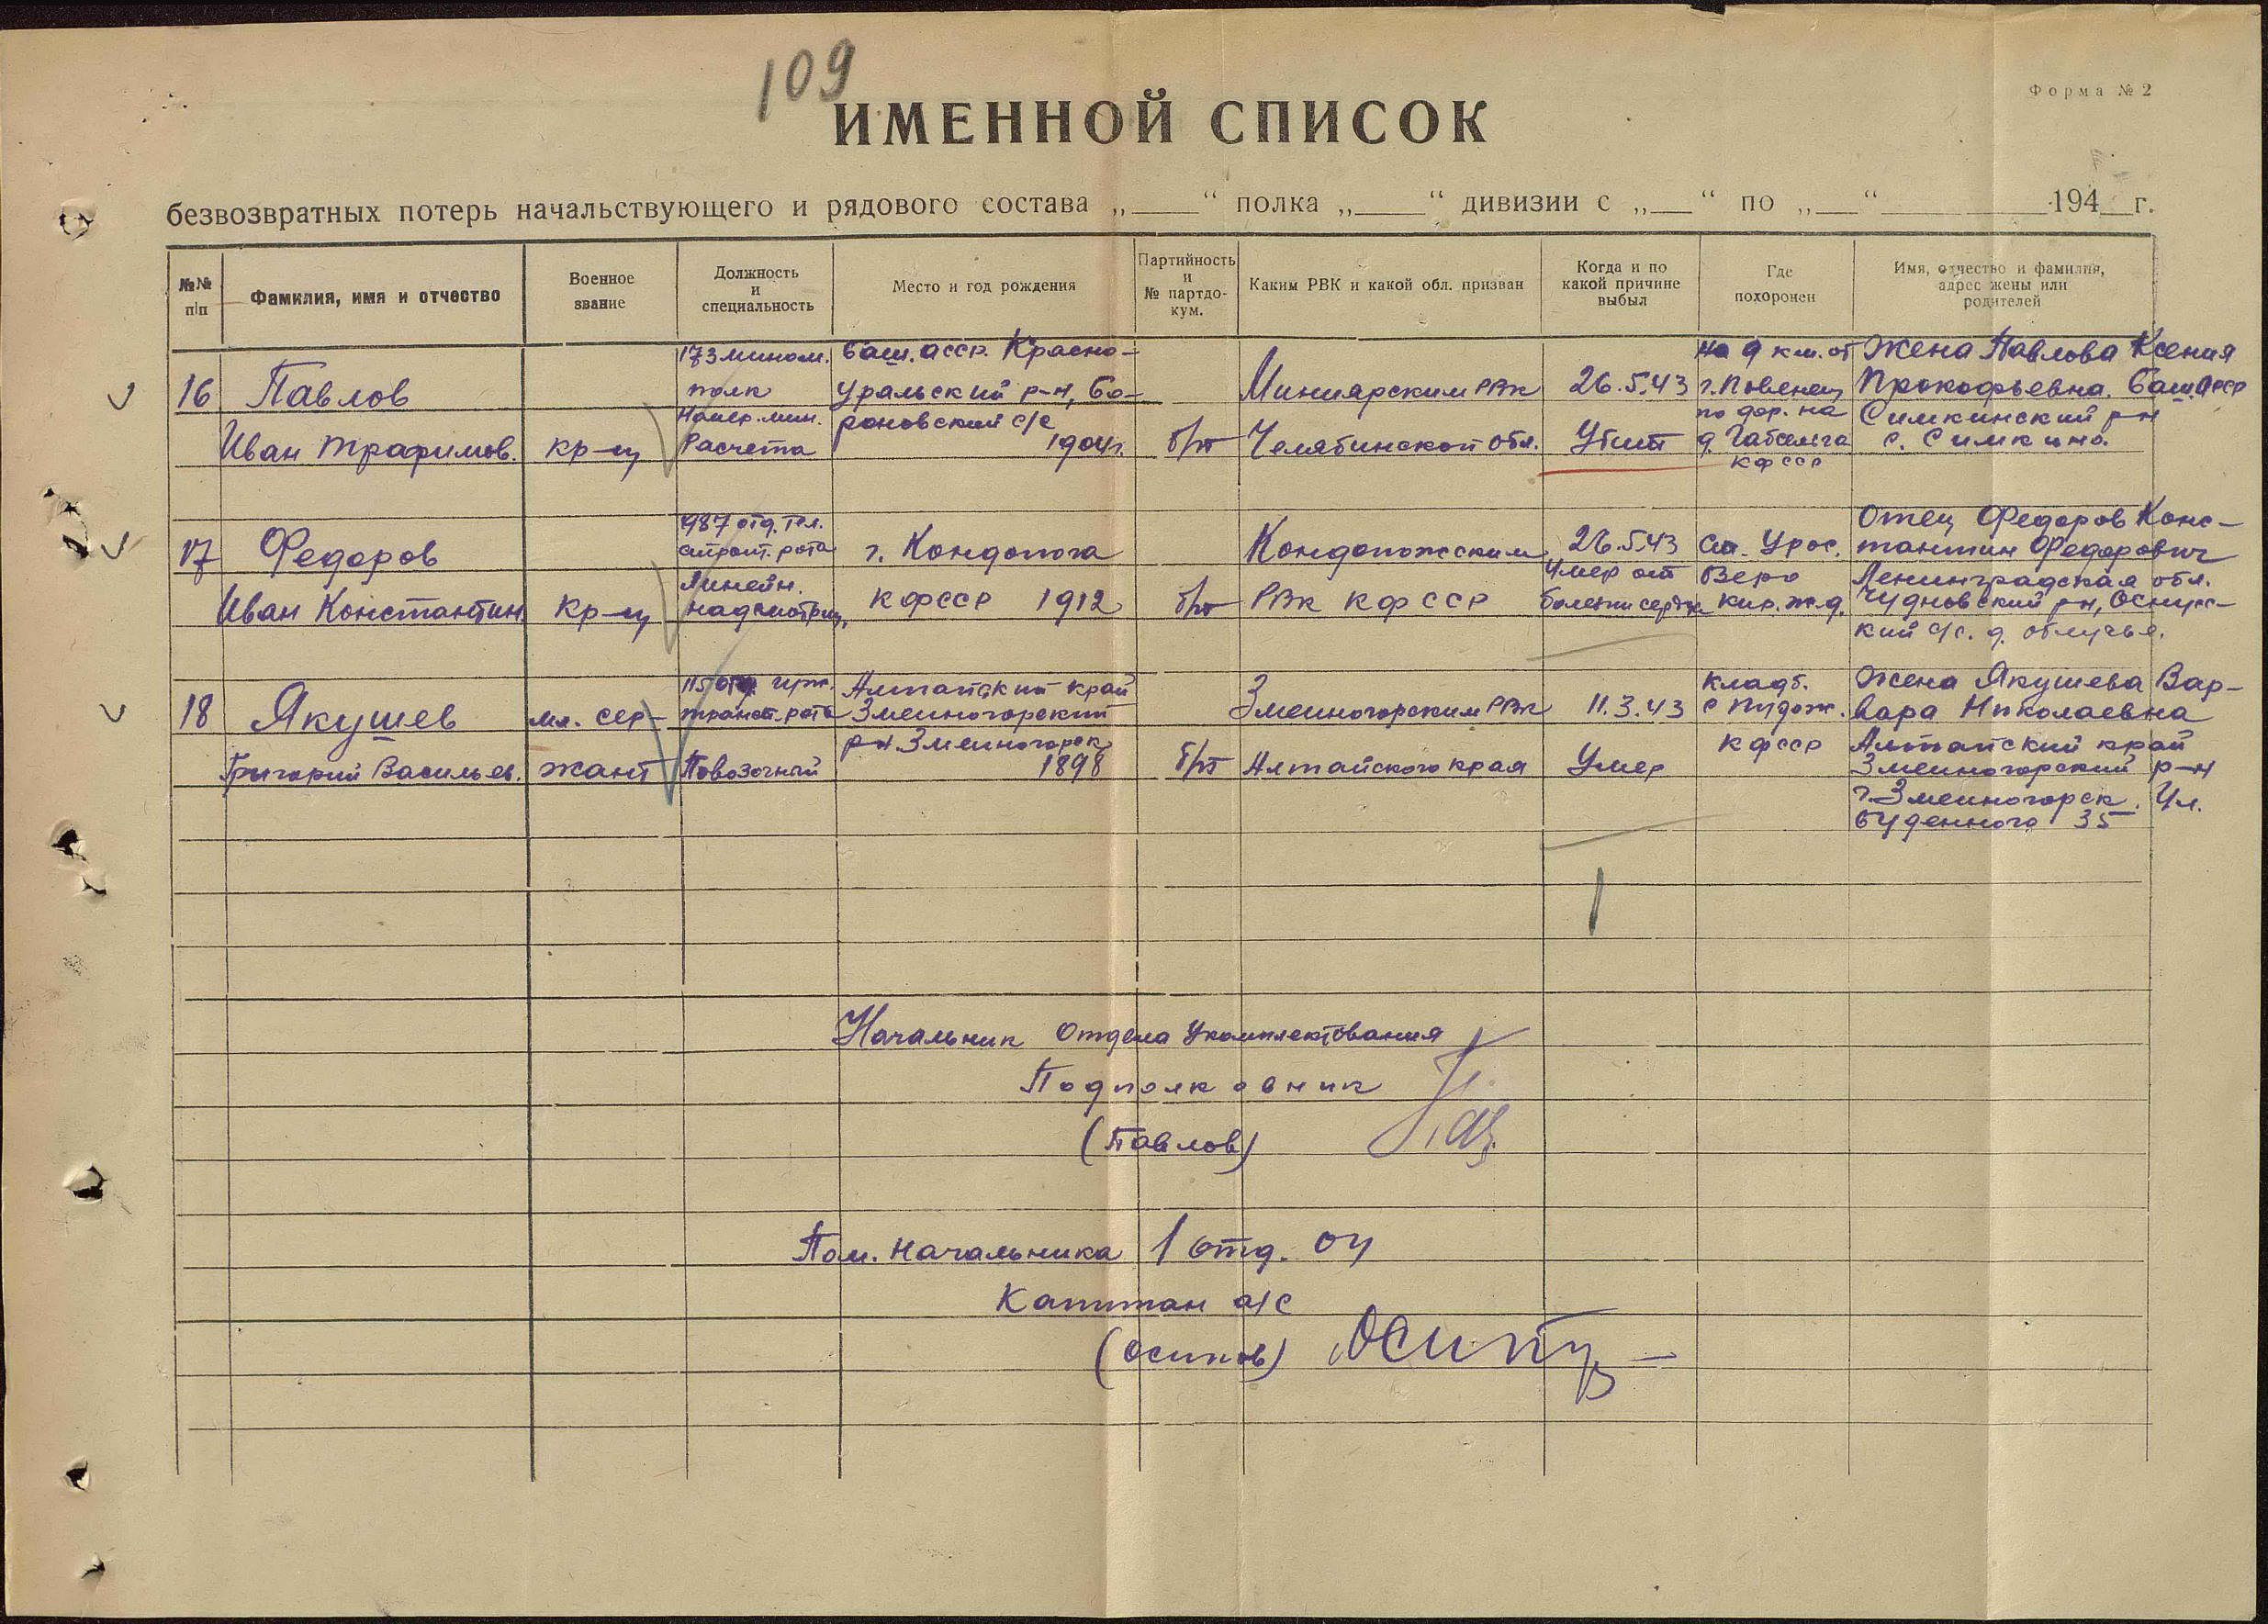 109
Форма № 2
ИМЕННОЙ СПИСОК
безвозвратных потерь начальствующего и рядового состава „ “ полка „ “ дивизии с „ “ по „ “ 194 г.
№№ п/п
Фамилия, имя и отчество
Военное звание
Должность и специальность
Место и год рождения
Партийность и № партдокум.
Каким РВК и какой обл. призван
Когда и по какой причине выбыл
Где похоронен
Имя, отчество и фамилия, адрес жены или родителей
16
Павлов
Иван Трафимов.
кр-ц
173 мином.
полк
Номер. мин.
Расчета
Баш. асср. Красно-
уральский р-н, Бо-
роновский с/с
1904г.
б/п
Миниярским РВК
Челябинской обл.
26.5.43
Убит
на 9 км. от
г. Повенец
по дор. на
д. Габсельга
КФССР
Жена Павлова Ксения
Прокофьевна. Баш. АССР
Симкинский р-н
с. Симкино.
17
Федоров
Иван Константин.
Кр-ц
987 отд. тел.
строит. рота
Линейн.
надсмотрщ.
г. Кондопога
КФССР 1912
б/п
Кондопожским
РВК КФССР
26.5.43
Умер от
болезни сердца
ст. Урос.
Озеро
Кир. ж.д.
Отец Федоров Конс-
тантин Федорович
Ленинградская обл.
Чудновский р-н,
кий с/с. д. облучье.
18
Якушев
Григорий Васильев.
мл. сер-
жант
115 отд. гуж.
трансп. рота
Повозочный
Алтайский край
Змеиногорский
р-н Змеиногорск
1898
б/п
Змеиногорским РВК
Алтайского края
11.3.43
Умер
кладб.
с Пудож.
КФССР
Жена Якушева Вар-
вара Николаевна
Алтайский край
Змеиногорский р-н
г. Змеиногорск. Ул.
Буденного 35
Начальник Отдела Укомплектования
Подполковник
(Павлов)
Пом. Начальника 1 отд. ОУ
Капитан а/с
(Осипов) Осипов